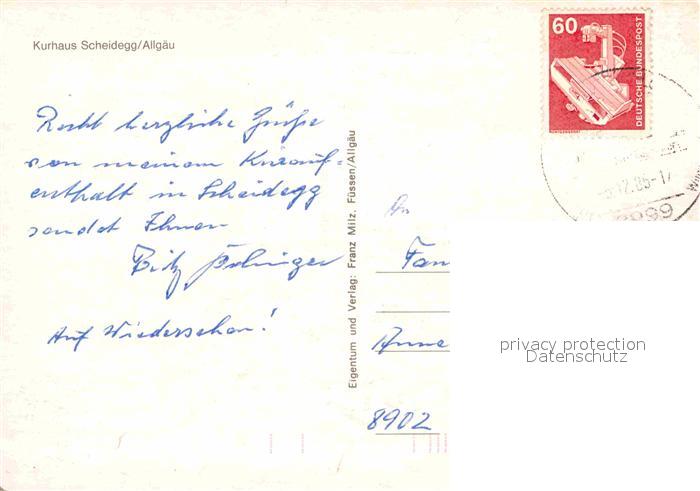 Kurhaus Scheidegg/Allgäu
60
DEUTSCHE BUNDESPOST
Recht herzliche Grüße
von meinem Kurauf-
enthalt in Scheidegg
sendet Ihnen
Fritz
Auf Wiedersehen!
Eigentum und Verlag: Franz Milz, Füssen/Allgäu
An
Fam
Anne
8902
12.85-17
privacy protection
Datenschutz